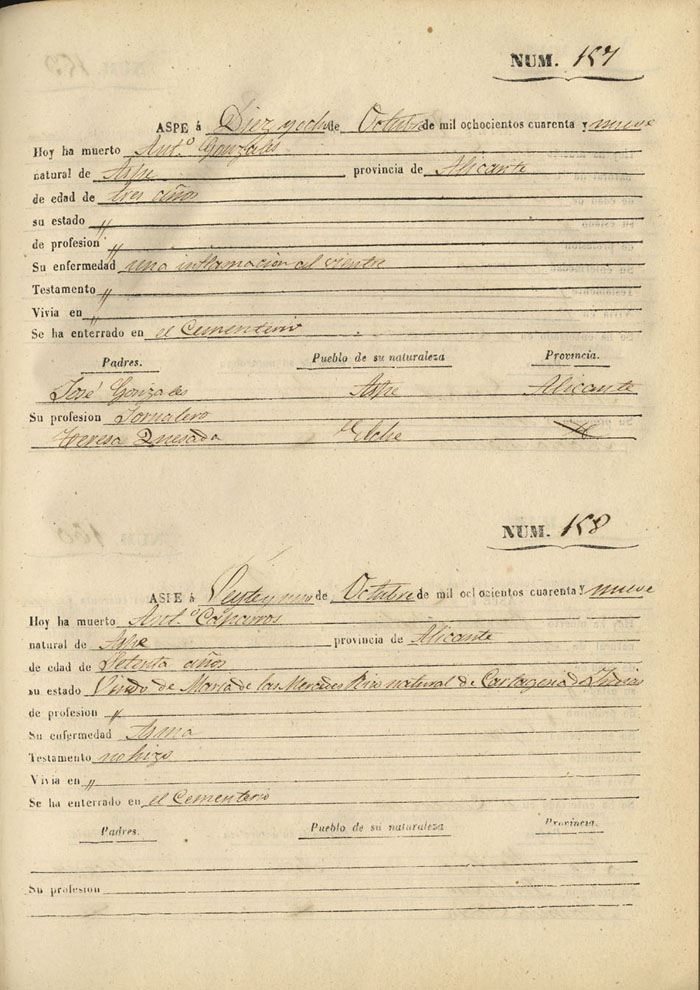 NUM. 157
ASPE á Diez y ocho de Octubre de mil ochocientos cuarenta y nueve
Hoy ha muerto Ant.º Gonzales
natural de Aspe provincia de Alicante
de edad de tres años
su estado "
de profesion "
Su enfermedad una inflamacion al vientre
Testamento "
Vivia en "
Se ha enterrado en el Cementerio
Padres. Pueblo de su naturaleza Provincia.
José Gonzales Aspe Alicante
Su profesion Jornalero
Teresa Quesada Elche
NUM. 158
ASPE á Veynte y uno de Octubre de mil ochocientos cuarenta y nueve
Hoy ha muerto Ant.º Caparros
natural de Aspe provincia de Alicante
de edad de Setenta años
su estado Viudo de Maria de las Mercedes natural de Cartagena
de profesion "
Su enfermedad Asma
Testamento no hizo
Vivia en "
Se ha enterrado en el Cementerio
Padres. Pueblo de su naturaleza Provincia.
Su profesion